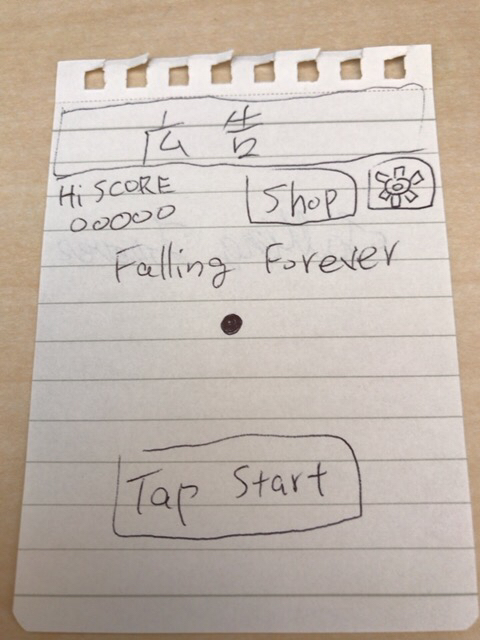 広告
Hi SCORE
00000
Shop
Falling Forever
Tap Start